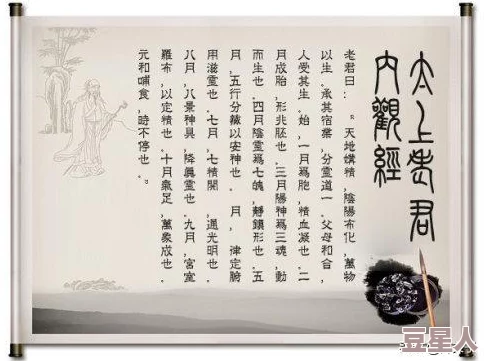 太上老君
內觀經
老君曰：“天地媾精，陰陽布化，萬物
以生．承其宿業，分靈道一．父母和合，
人受其生．始，一月爲胞，精血凝也．二
月成胎，形兆胚也．三月陽神爲三魂，動
而生也．四月陰靈爲七魄，靜鎮形也．五
月，五行分藏以安神也． 月， 律定腑
用滋靈也．七月，七精開 ，通光明也．
八月，八景神具，降眞靈也．九月，宮室
羅布，以定精也．十月氣足，萬象成也．
元和哺食，時不停也．”
豆星人